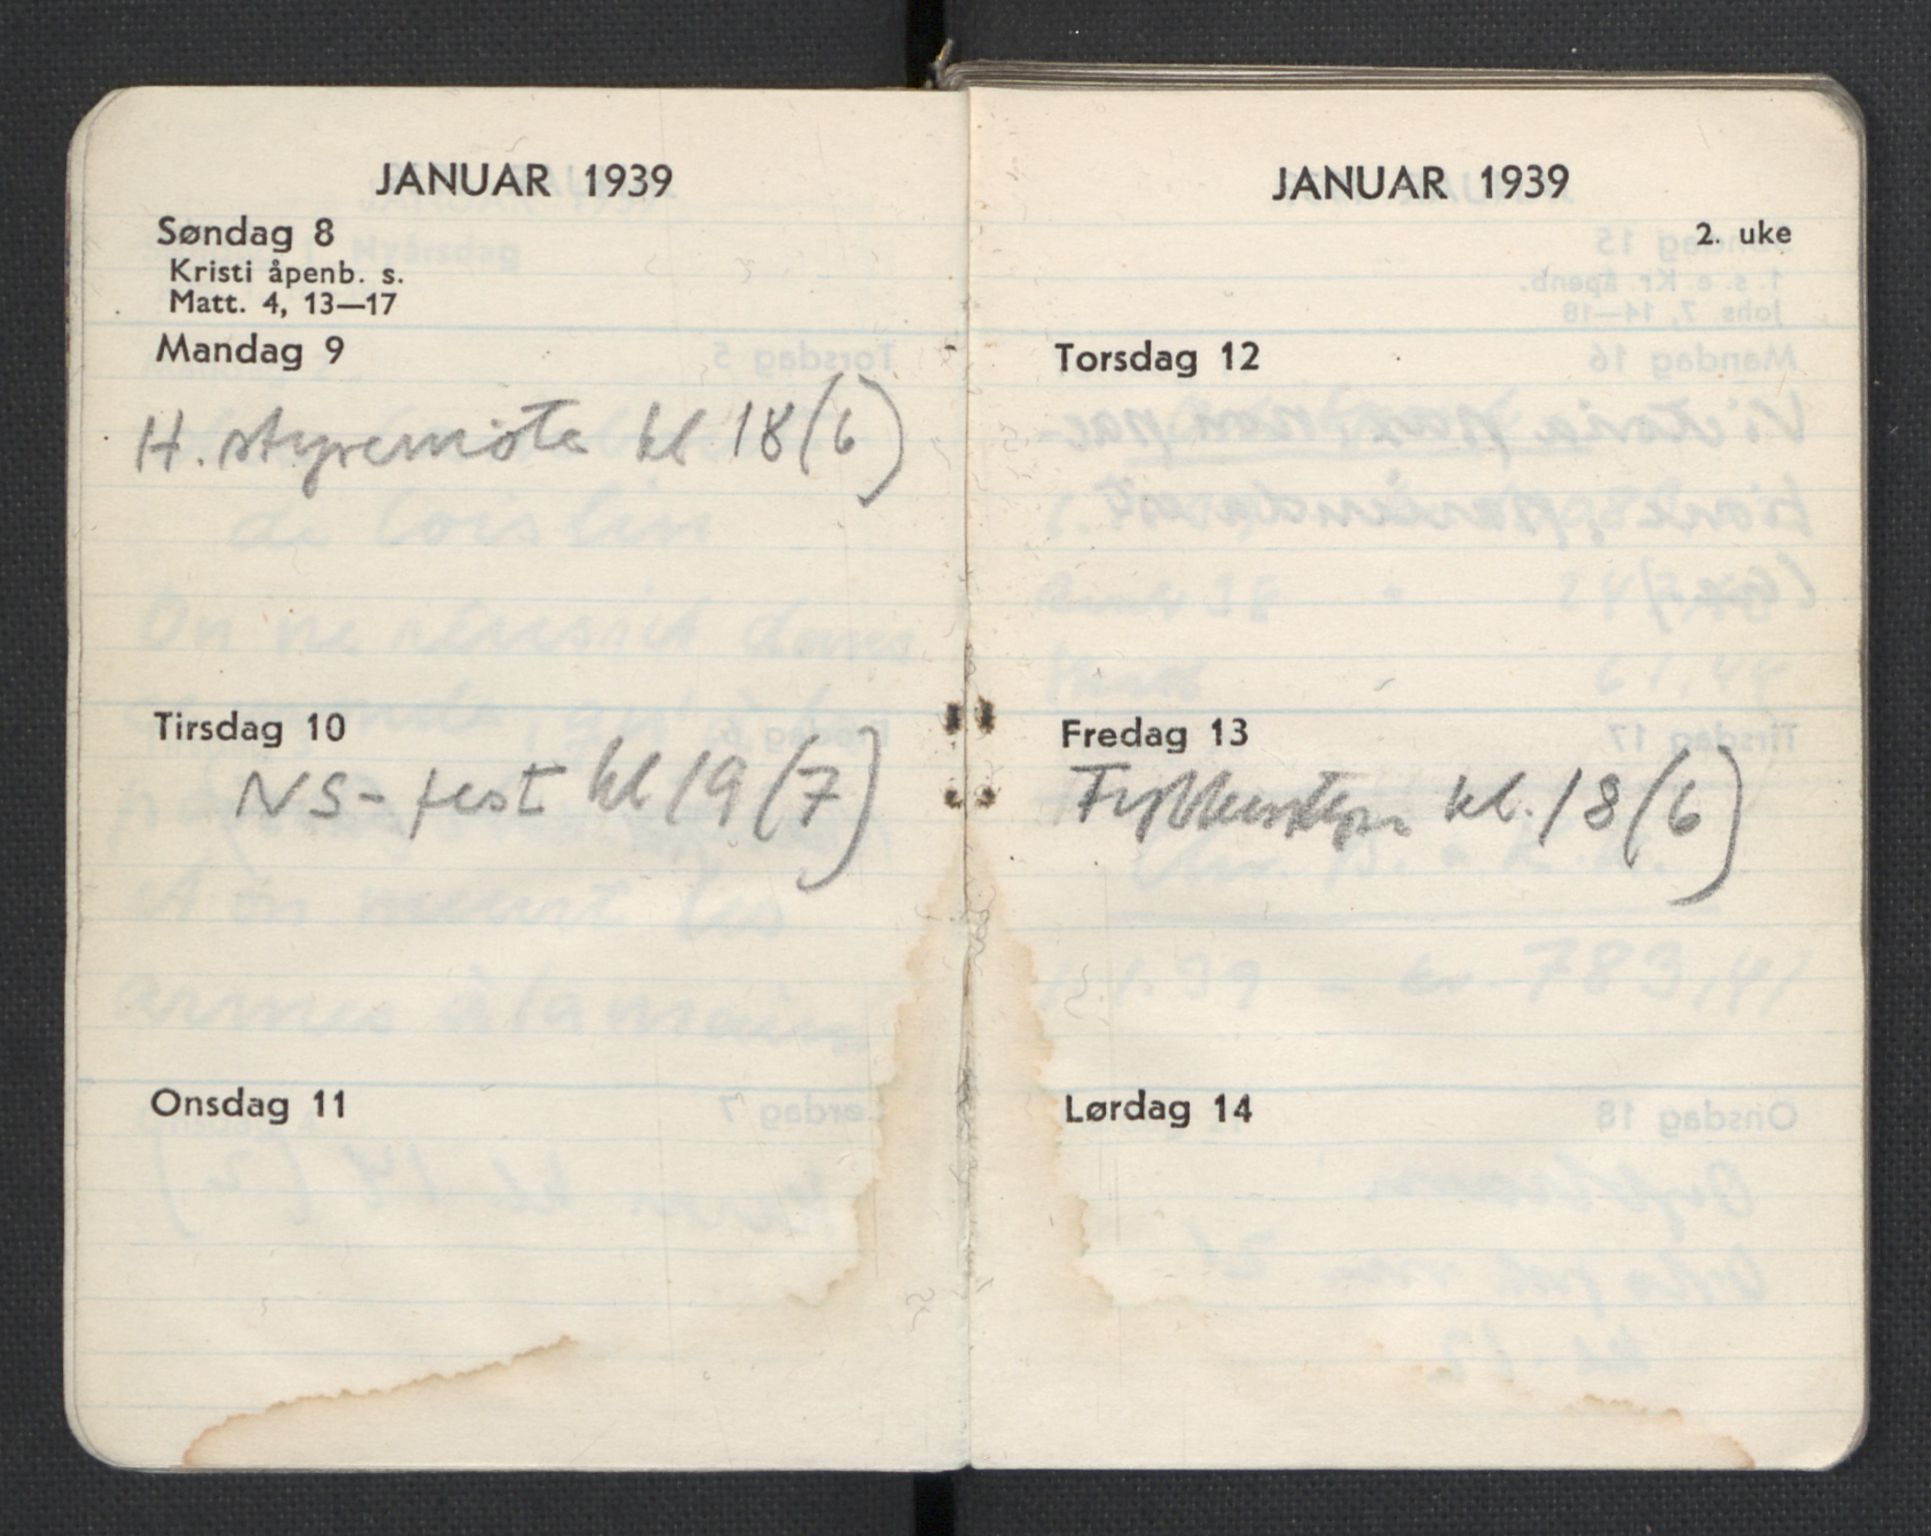 JANUAR 1939
Søndag 8
Kristi åpenb. s.
Matt. 4, 13—17
Mandag 9
H. styremøte kl. 18 (6)
Tirsdag 10
NS-fest kl 19 (7)
Onsdag 11
JANUAR 1939
2. uke
Torsdag 12
Fredag 13
kl. 18 (6)
Lørdag 14